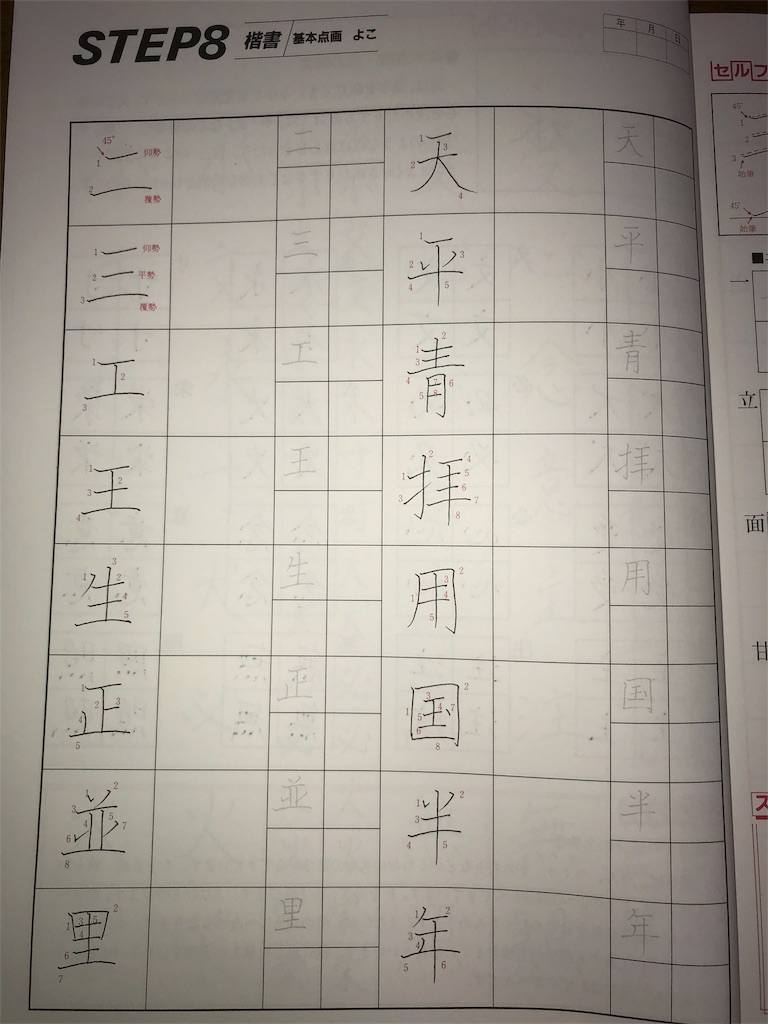 STEP8 楷書 基本点画 よこ
年 月 日
45° 1 仰勢 2 覆勢
二 二 天 1 2 3 4 天
1 仰勢 2 平勢 3 覆勢
三 三 平 1 2 3 4 5 平
工 1 2 3 工 青 1 2 3 4 5 6 7 8 青
王 1 2 3 4 王 拝 1 2 3 4 5 6 7 8 拝
生 1 2 3 4 5 生 用 1 2 3 4 5 用
正 1 2 3 4 5 正 国 1 2 3 4 5 6 7 8 国
並 1 2 3 4 5 6 7 8 並 半 1 2 3 4 5 半
里 1 2 3 4 5 6 7 里 年 1 2 3 4 5 6 年
セルフ
45°
1
2
3
始筆
45°
始筆
一
立
面
甘
ス